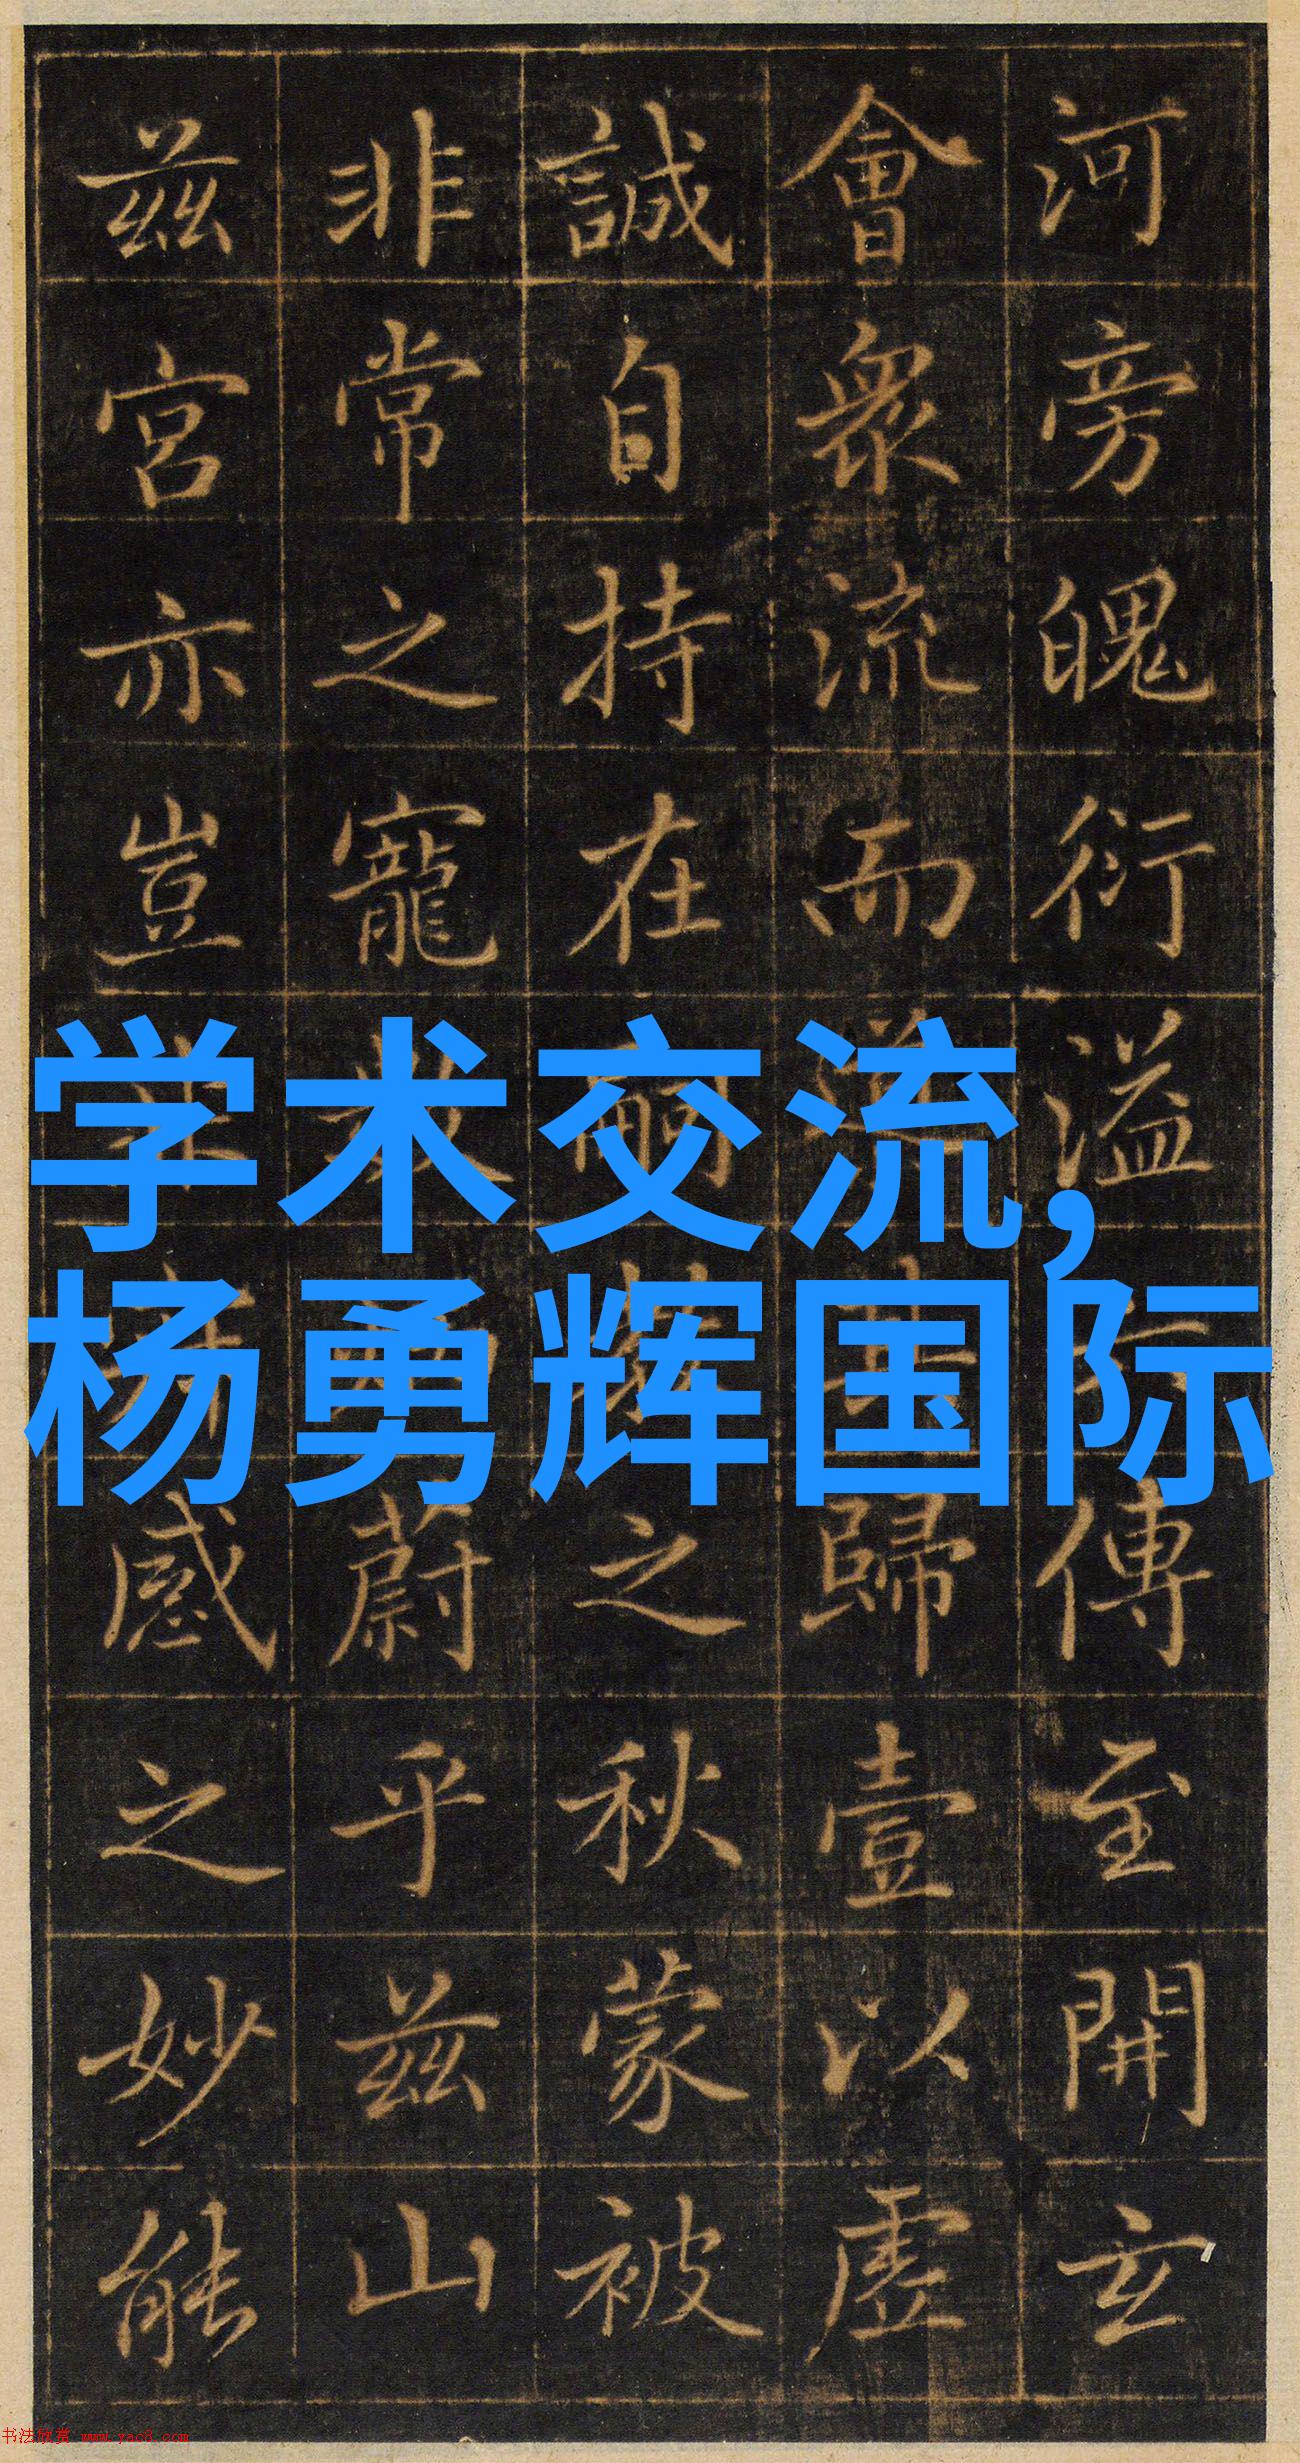 河旁魄衍溢傳至開玄
會眾流而歸壹以虛
誠自持在之秋蒙被
非常之寵蔚乎茲山
茲宮亦豈感之妙能
学术交流,
杨勇辉国际
书法欣赏 www.yac8.com